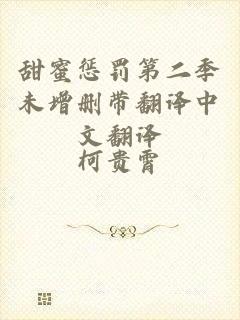 甜蜜惩罚第二季
未增删带翻译中
文翻译
柯贵霄